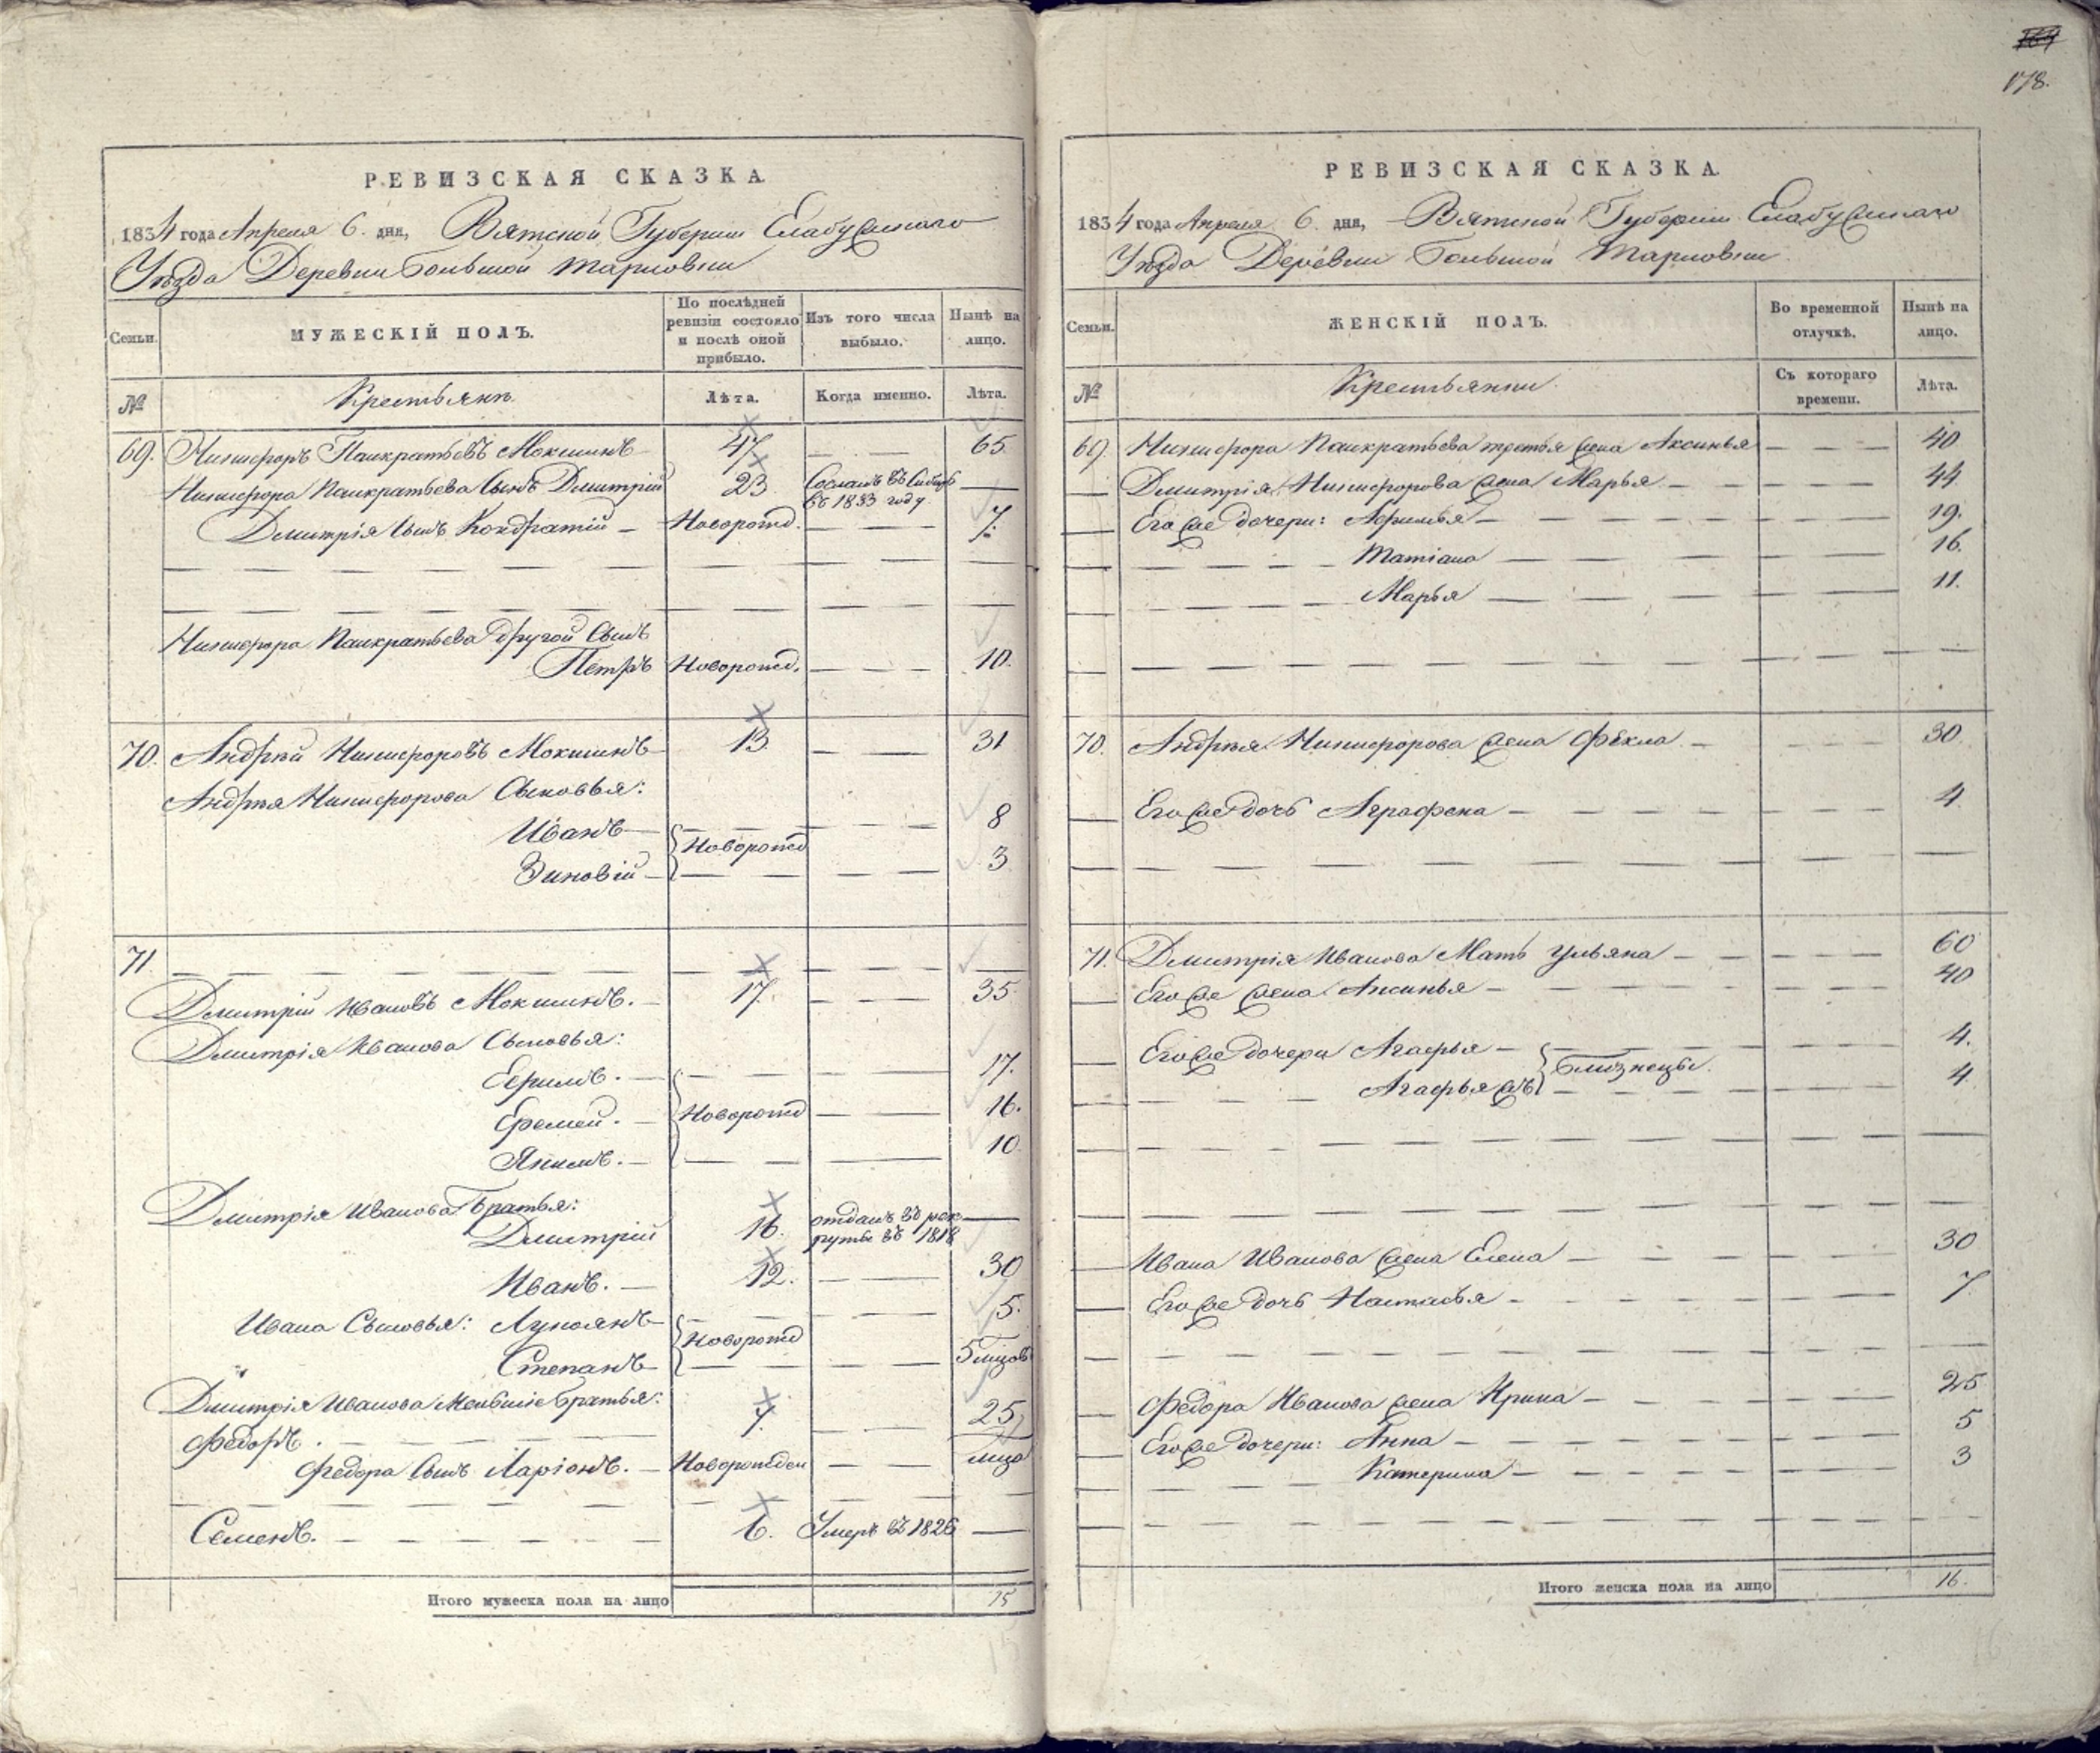 169
178.
РЕВИЗСКАЯ СКАЗКА.
1834 года Апреля 6. дня, Вятской Губернии Елабужскаго
Уѣзда Деревни Большой Тарловки
Семьи.
МУЖЕСКІЙ ПОЛЪ.
По послѣдней ревизіи состояло и послѣ оной прибыло.
Изъ того числа выбыло.
Нынѣ на лицо.
№ Крестьянъ Лѣта. Когда именно. Лѣта.
69. Никифоръ Панкратьевъ Мокшинъ 47 — — 65.
Никифора Панкратьева Сынъ Дмитрій 23 Сосланъ въ Сибирь —
въ 1833 году
Дмитрія Сынъ Кондратій — Новорожд. — — 7.
Никифора Панкратьева другой Сынъ
Петръ Новорожд. — — 10.
70. Андрѣй Никифоровъ Мокшинъ 13. — — 31
Андрѣя Никифорова Сыновья:
Иванъ — 8
Новорожд
Зиновій — 3
71.
Дмитрій Ивановъ Мокшинъ. — 17. — — 35
Дмитрія Иванова Сыновья:
Ефимъ. — 17.
Еремей. — Новорожд — 16.
Якимъ. — 10
Дмитрія Иванова Братья:
Дмитрій 16. отданъ въ рек —
руты въ 1818
Иванъ. — 12. — — 30
Ивана Сыновья: Лукоянъ — 5.
Новорожд
Степанъ — 5 мѣсцов
Дмитрія Иванова Меньшіе братья:
Федоръ. 7. — — 25
Федора Сынъ Ларіонъ. — Новорожден — — мѣсца
Семенъ. — 6. Умеръ въ 1826 —
Итого мужеска пола на лицо 15
РЕВИЗСКАЯ СКАЗКА.
1834 года Апреля 6. дня, Вятской Губерніи Елабужскаго
Уѣзда Деревни Большой Тарловки
Семьи.
ЖЕНСКІЙ ПОЛЪ.
Во временной отлучкѣ.
Нынѣ на лицо.
№ Крестьянки. Съ котораго времени. Лѣта.
69. Никифора Панкратьева третья жена Аксинья — — — 40
Дмитрія Никифорова жена Марья — 44
Его же дочери: Афимья — 19.
Татіана — 16.
Марья — 11.
70. Андрѣя Никифорова жена Фекла — 30
Его же дочь Аграфена — 4
71. Дмитрія Иванова Мать Ульяна — 60
Его же жена Аксинья — 40
Его же дочери Агафья — 4.
близнецы.
Агафья жъ — 4
Ивана Иванова жена Елена — 30
Его же дочь Настасья — 7
Федора Иванова жена Ирина — 25
Его же дочери: Анна — 5
Катерина — 3
Итого женска пола на лицо 16.
15
16